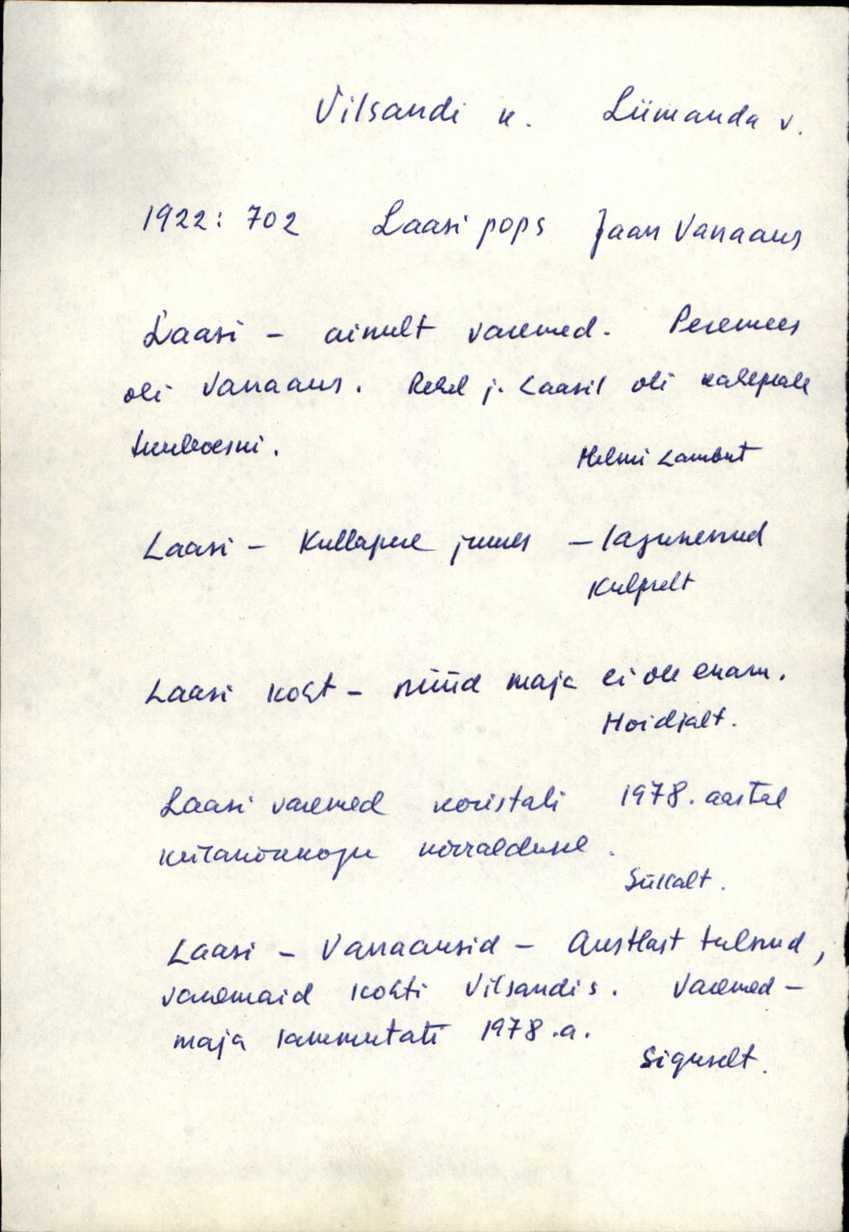 Vilsandi k. Liimanda v.
1922: 702 Laasi pops Jaan Vanaaus
Laasi - ainult varemed. Peremees
oli Vanaaus. j. Laasil oli
tuuleveski.
Helmi Lambut
Laasi - Kullapere juures - lagunenud
Kulpselt
Laasi koht - nüüd maja ei ole enam.
Hoidjalt.
Laasi varemed koristati 1978. aastal
külanõukogu korraldusel.
Süllalt.
Laasi - Vanaausid - Austlast tulnud,
vanemaid kohti Vilsandis. Varemed -
maja lammutati 1978.a.
Siguselt.